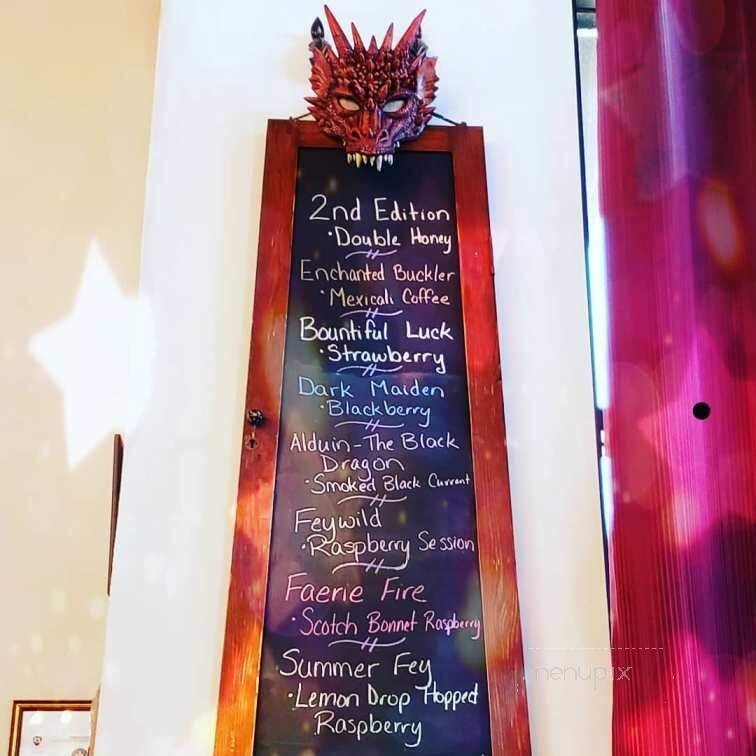 2nd Edition
·Double Honey
Enchanted Buckler
·Mexicali Coffee
Bountiful Luck
·Strawberry
Dark Maiden
·Blackberry
Alduin-The Black
Dragon
·Smoked Black Currant
Feywild
·Raspberry Session
Faerie Fire
·Scotch Bonnet Raspberry
Summer Fey
·Lemon Drop Hopped
Raspberry
menupix